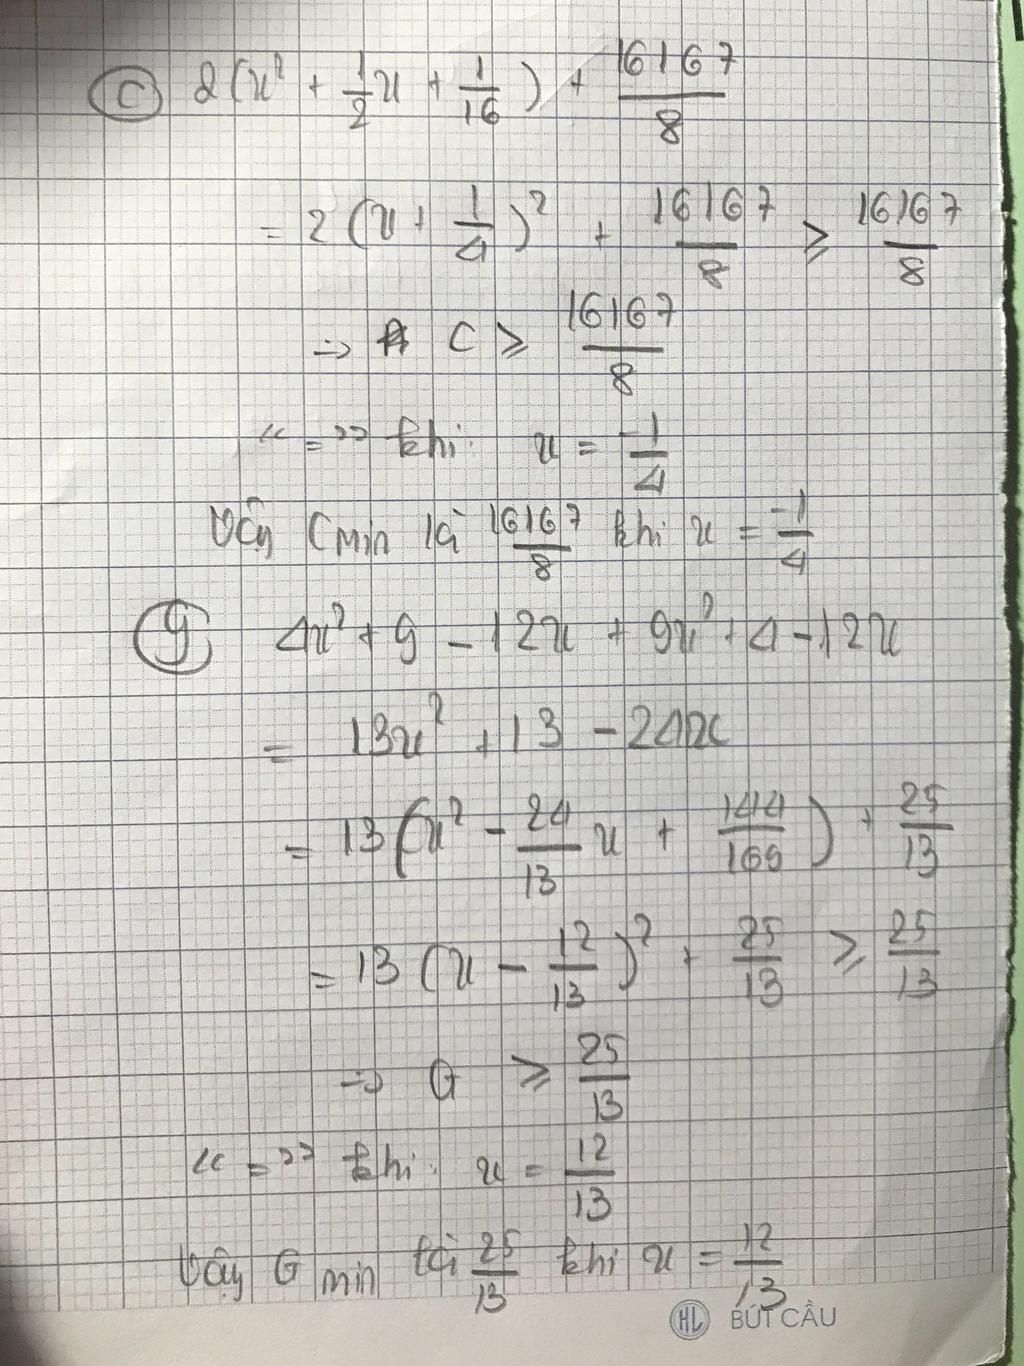 C) 2(x² + 1/2 x + 1/16) + 16167/8
= 2(x + 1/4)² + 16167/8 ≥ 16167/8
=> C ≥ 16167/8
"=" khi: x = -1/4
Vậy Cmin là 16167/8 khi x = -1/4
g) 4x² + 9 - 12x + 9x² + 4 - 12x
= 13x² + 13 - 24x
= 13(x² - 24/13 x + 144/169) + 25/13
= 13(x - 12/13)² + 25/13 ≥ 25/13
=> G ≥ 25/13
"=" khi: x = 12/13
Vậy G min là 25/13 khi x = 12/13
HL BÚT CẦU